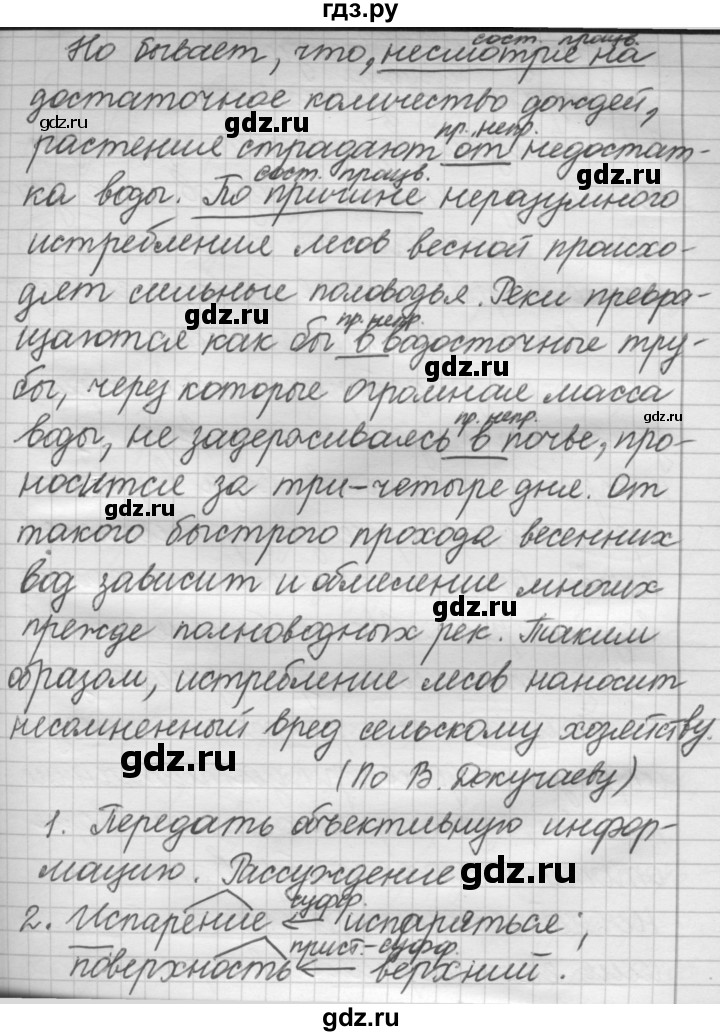 гдз.ру
сост. произв.
Но бывает, что, несмотря на
достаточное количество дождей,
gdz.ru gdz.ru
пр. непр.
растения страдают от недостат-
сост. произв.
gdz.ru
ка воды. По причине неразумного
истребления лесов весной происхо-
дят сильные половодья. Реки превра-
gdz.ru
пр. непр.
щаются как бы в водосточные тру-
gdz.ru
бы, через которые огромная масса
пр. непр. gdz.ru
воды, не задерживаясь в почве, про-
носится за три-четыре дня. От
gdz.ru
такого быстрого прохода весенних
вод зависит и обмеление многих
gdz.ru
прежде полноводных рек. Таким
образом, истребление лесов наносит
несомненный вред сельскому хозяйству.
gdz.ru
(По В. Докучаеву)
1. Передать объективную инфор-
мацию. Рассуждение
gdz.ru
суфф.
2. Испарение ← испаряться;
прист.-суфф.
поверхность ← верхний.
gdz.ru gdz.ru